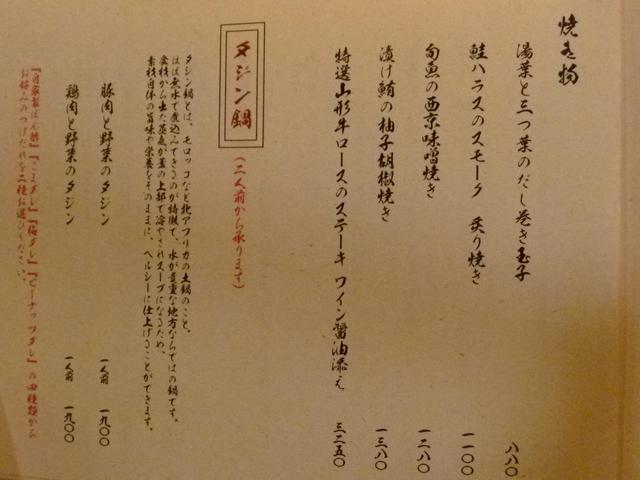 焼き物
湯葉と三つ葉のだし巻き玉子 八八〇
鮭ハラスのスモーク 炙り焼き 一一〇〇
旬魚の西京味噌焼き 一二八〇
漬け鮪の柚子胡椒焼き 一三八〇
特選山形牛ロースのステーキ ワイン醤油添え 三二五〇
タジン鍋
(二人前から承ります)
タジン鍋とは、モロッコなど北アフリカの土鍋のこと。
ほぼ無水で煮込みできるのが特徴で、水が貴重な地方ならではの鍋です。
食材から出た蒸気が蓋の上部で冷やされスープになるため、
素材自体の旨味や栄養をそのままに、ヘルシーに仕上げることができます。
豚肉と野菜のタジン 一人前 一九〇〇
鶏肉と野菜のタジン 一人前 一九〇〇
『自家製ぽん酢』『ごまダレ』『梅ダレ』『ピーナッツダレ』の四種類から
お好みのつけだれを二種お選びください。